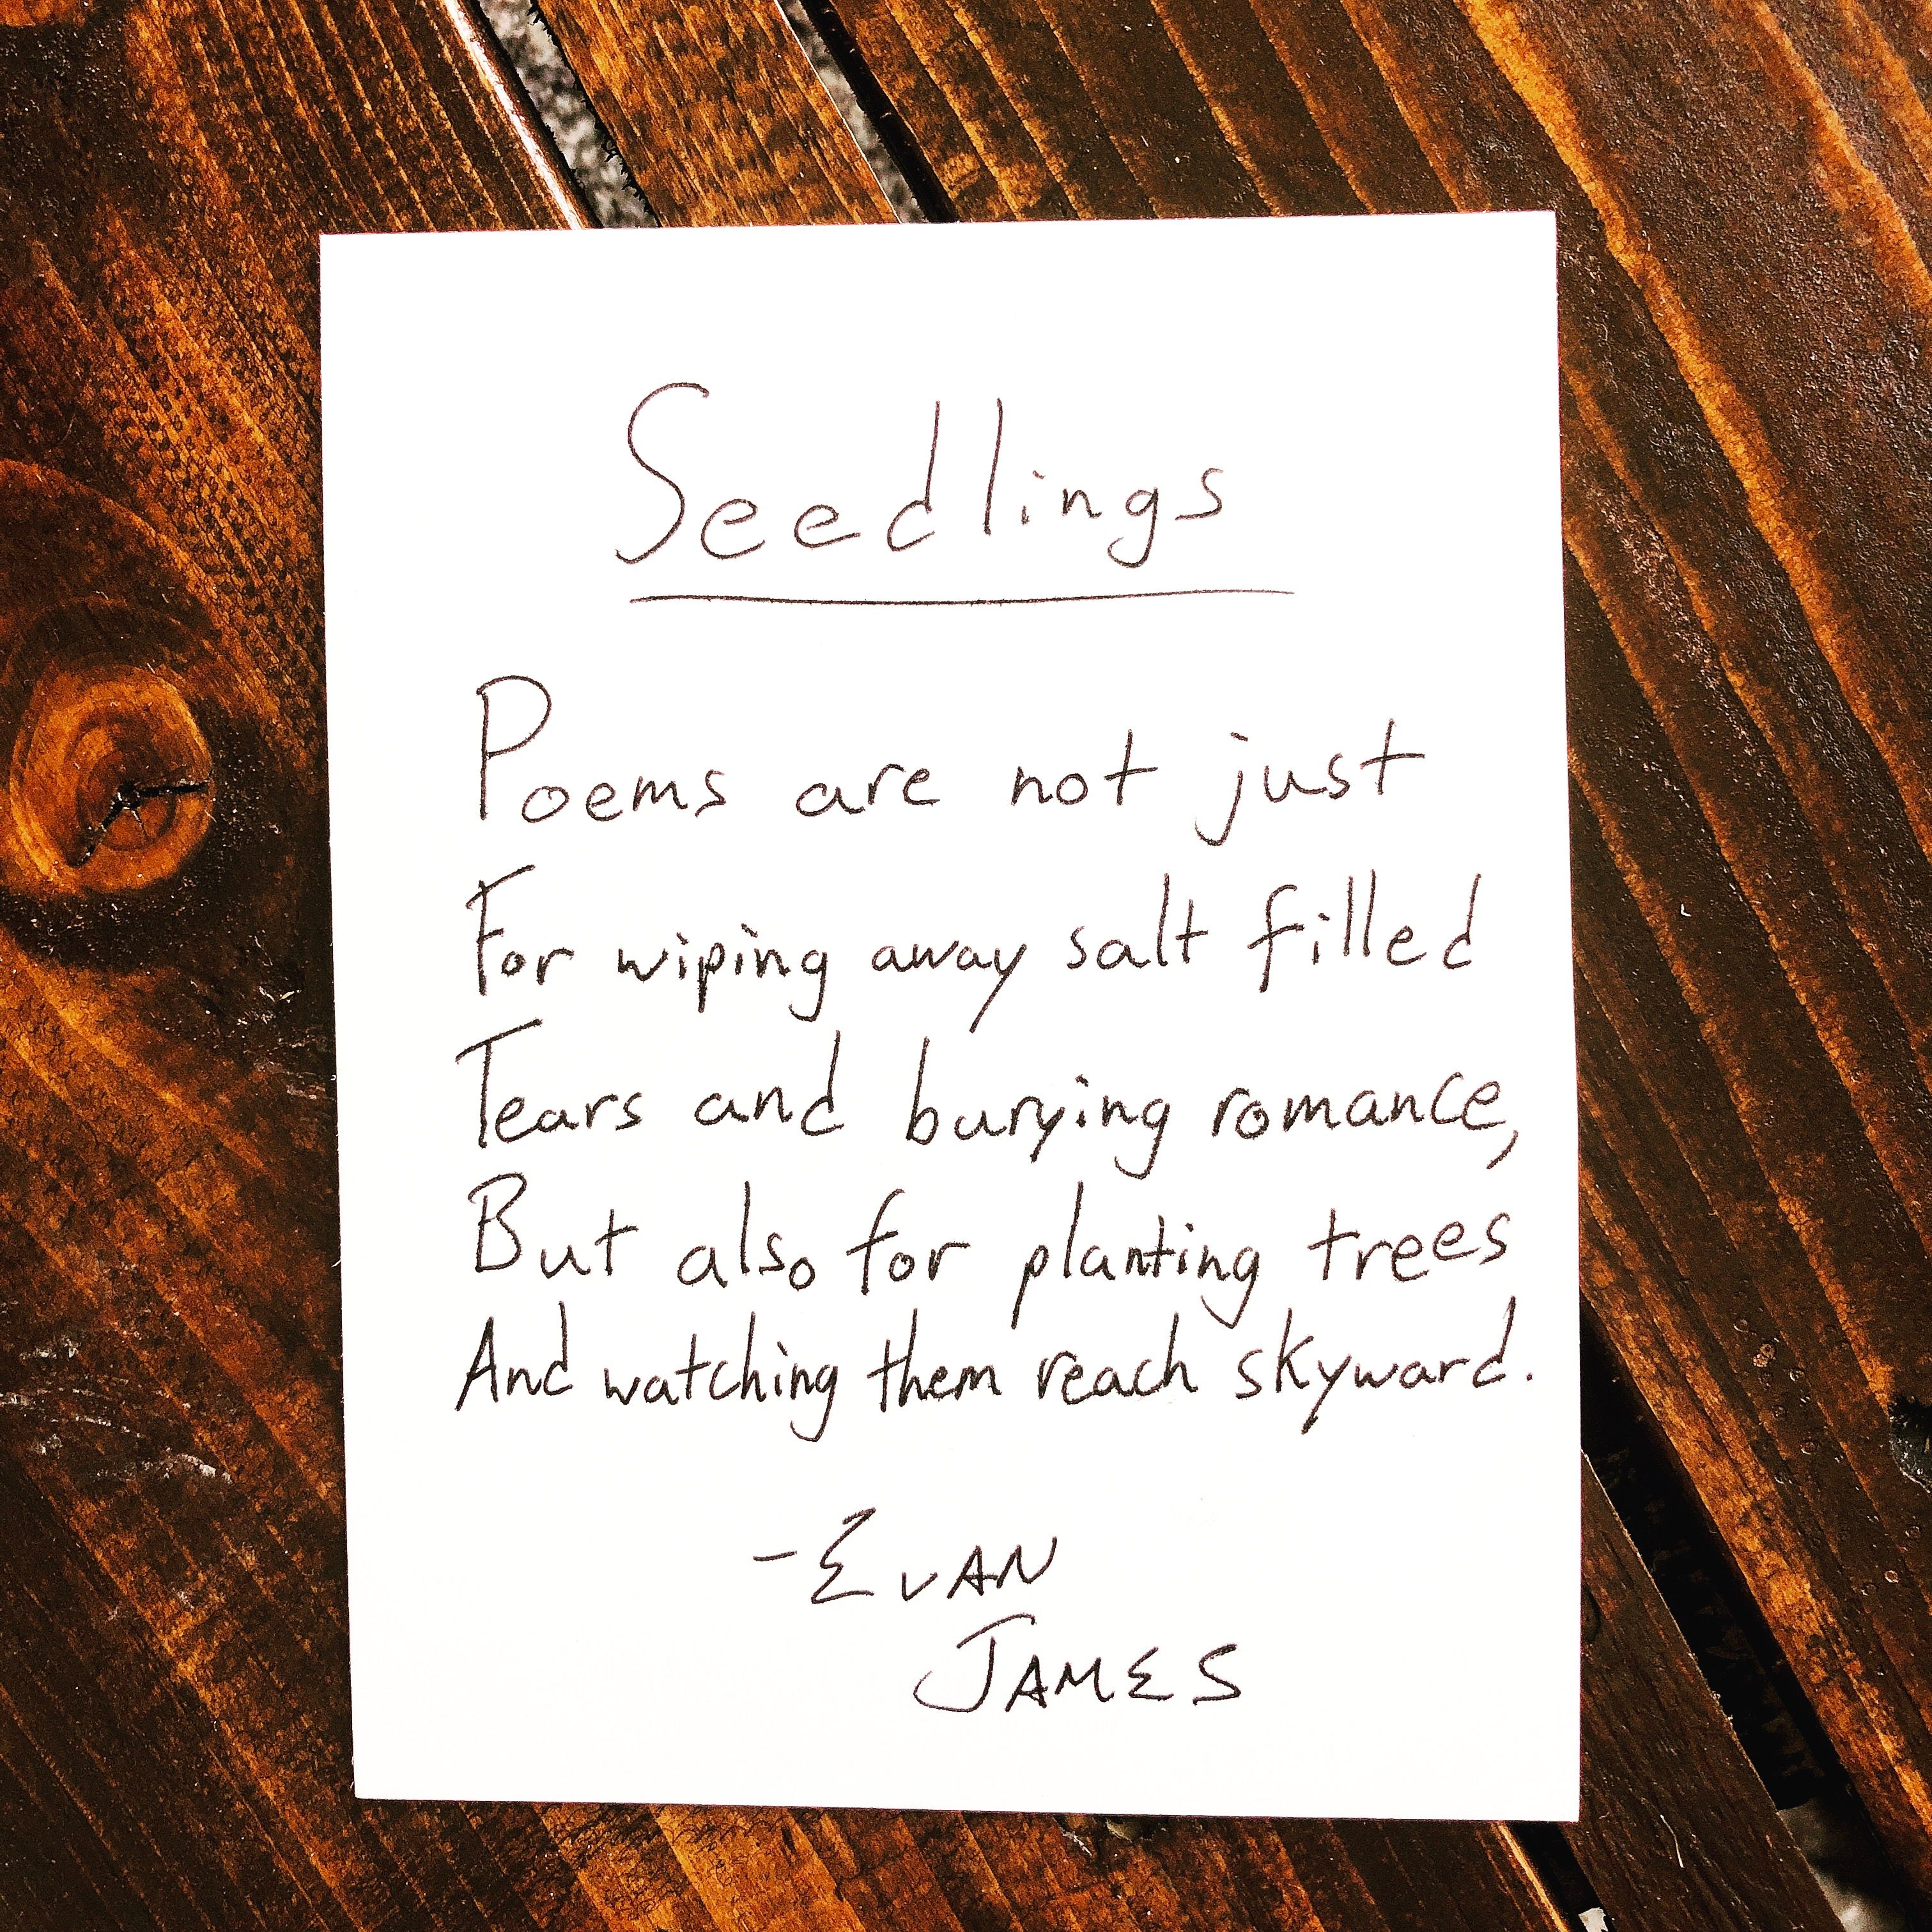 Seedlings
Poems are not just
For wiping away salt filled
Tears and burying romance,
But also for planting trees
And watching them reach skyward.
-EVAN
JAMES